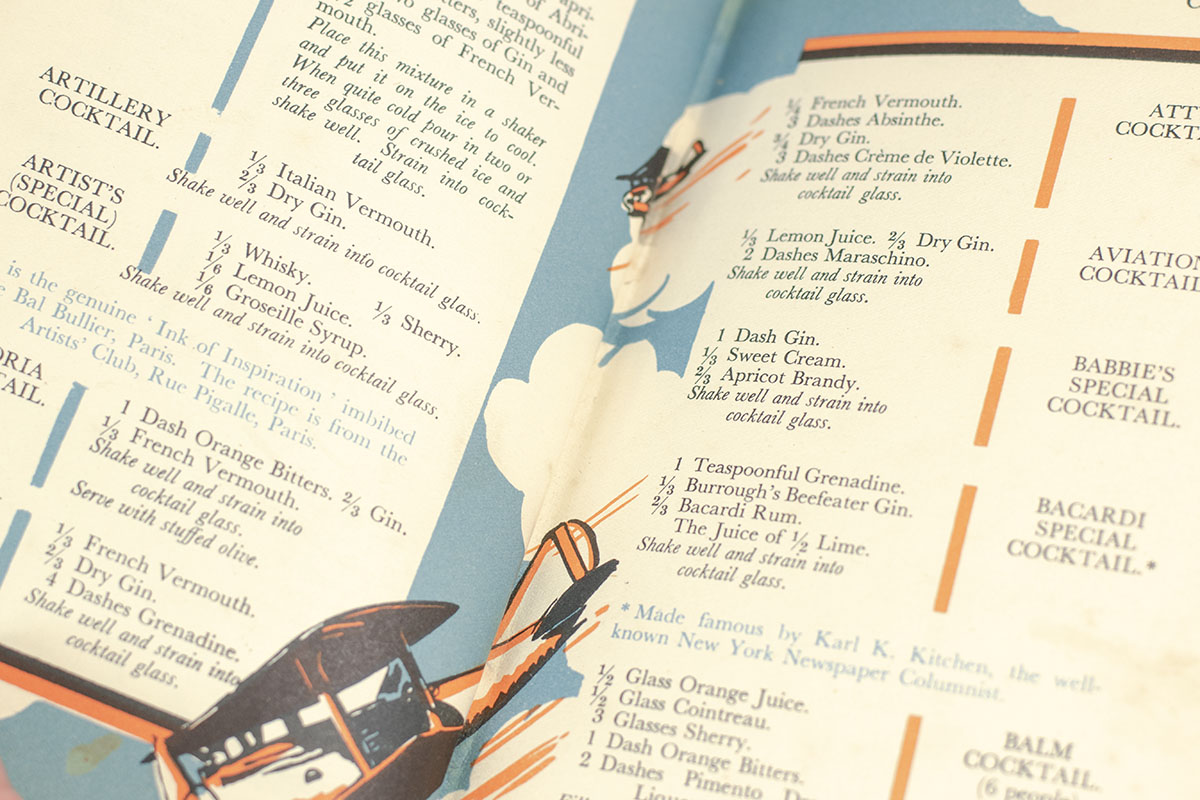 apri-
of Abri-
tters, slightly less
teaspoonful
glasses of Gin and
½ glasses of French Ver-
mouth.
Place this mixture in a shaker
and put it on the ice to cool.
When quite cold pour in two or
three glasses of crushed ice and
shake well. Strain into cock-
tail glass.
ARTILLERY
COCKTAIL.
⅓ Italian Vermouth.
⅔ Dry Gin.
Shake well and strain into cocktail glass.
ARTIST'S
(SPECIAL)
COCKTAIL.
⅓ Whisky.
⅙ Lemon Juice. ⅓ Sherry.
⅙ Groseille Syrup.
Shake well and strain into cocktail glass.
is the genuine ' Ink of Inspiration ' imbibed
Bal Bullier, Paris. The recipe is from the
Artists' Club, Rue Pigalle, Paris.
ORIA
TAIL.
1 Dash Orange Bitters. ⅔ Gin.
⅓ French Vermouth.
Shake well and strain into
cocktail glass.
Serve with stuffed olive.
⅓ French Vermouth.
⅔ Dry Gin.
4 Dashes Grenadine.
Shake well and strain into
cocktail glass.
¼ French Vermouth.
3 Dashes Absinthe.
¾ Dry Gin.
3 Dashes Crème de Violette.
Shake well and strain into
cocktail glass.
ATT
COCKT
⅓ Lemon Juice. ⅔ Dry Gin.
2 Dashes Maraschino.
Shake well and strain into
cocktail glass.
AVIATION
COCKTAIL
1 Dash Gin.
⅓ Sweet Cream.
⅔ Apricot Brandy.
Shake well and strain into
cocktail glass.
BABBIE'S
SPECIAL
COCKTAIL.
1 Teaspoonful Grenadine.
⅓ Burrough's Beefeater Gin.
⅔ Bacardi Rum.
The Juice of ½ Lime.
Shake well and strain into
cocktail glass.
BACARDI
SPECIAL
COCKTAIL.*
* Made famous by Karl K. Kitchen, the well-
known New York Newspaper Columnist.
½ Glass Orange Juice.
½ Glass Cointreau.
3 Glasses Sherry.
1 Dash Orange Bitters.
2 Dashes Pimento Dr
Liqueu
BALM
COCKTAIL.
(6 people)